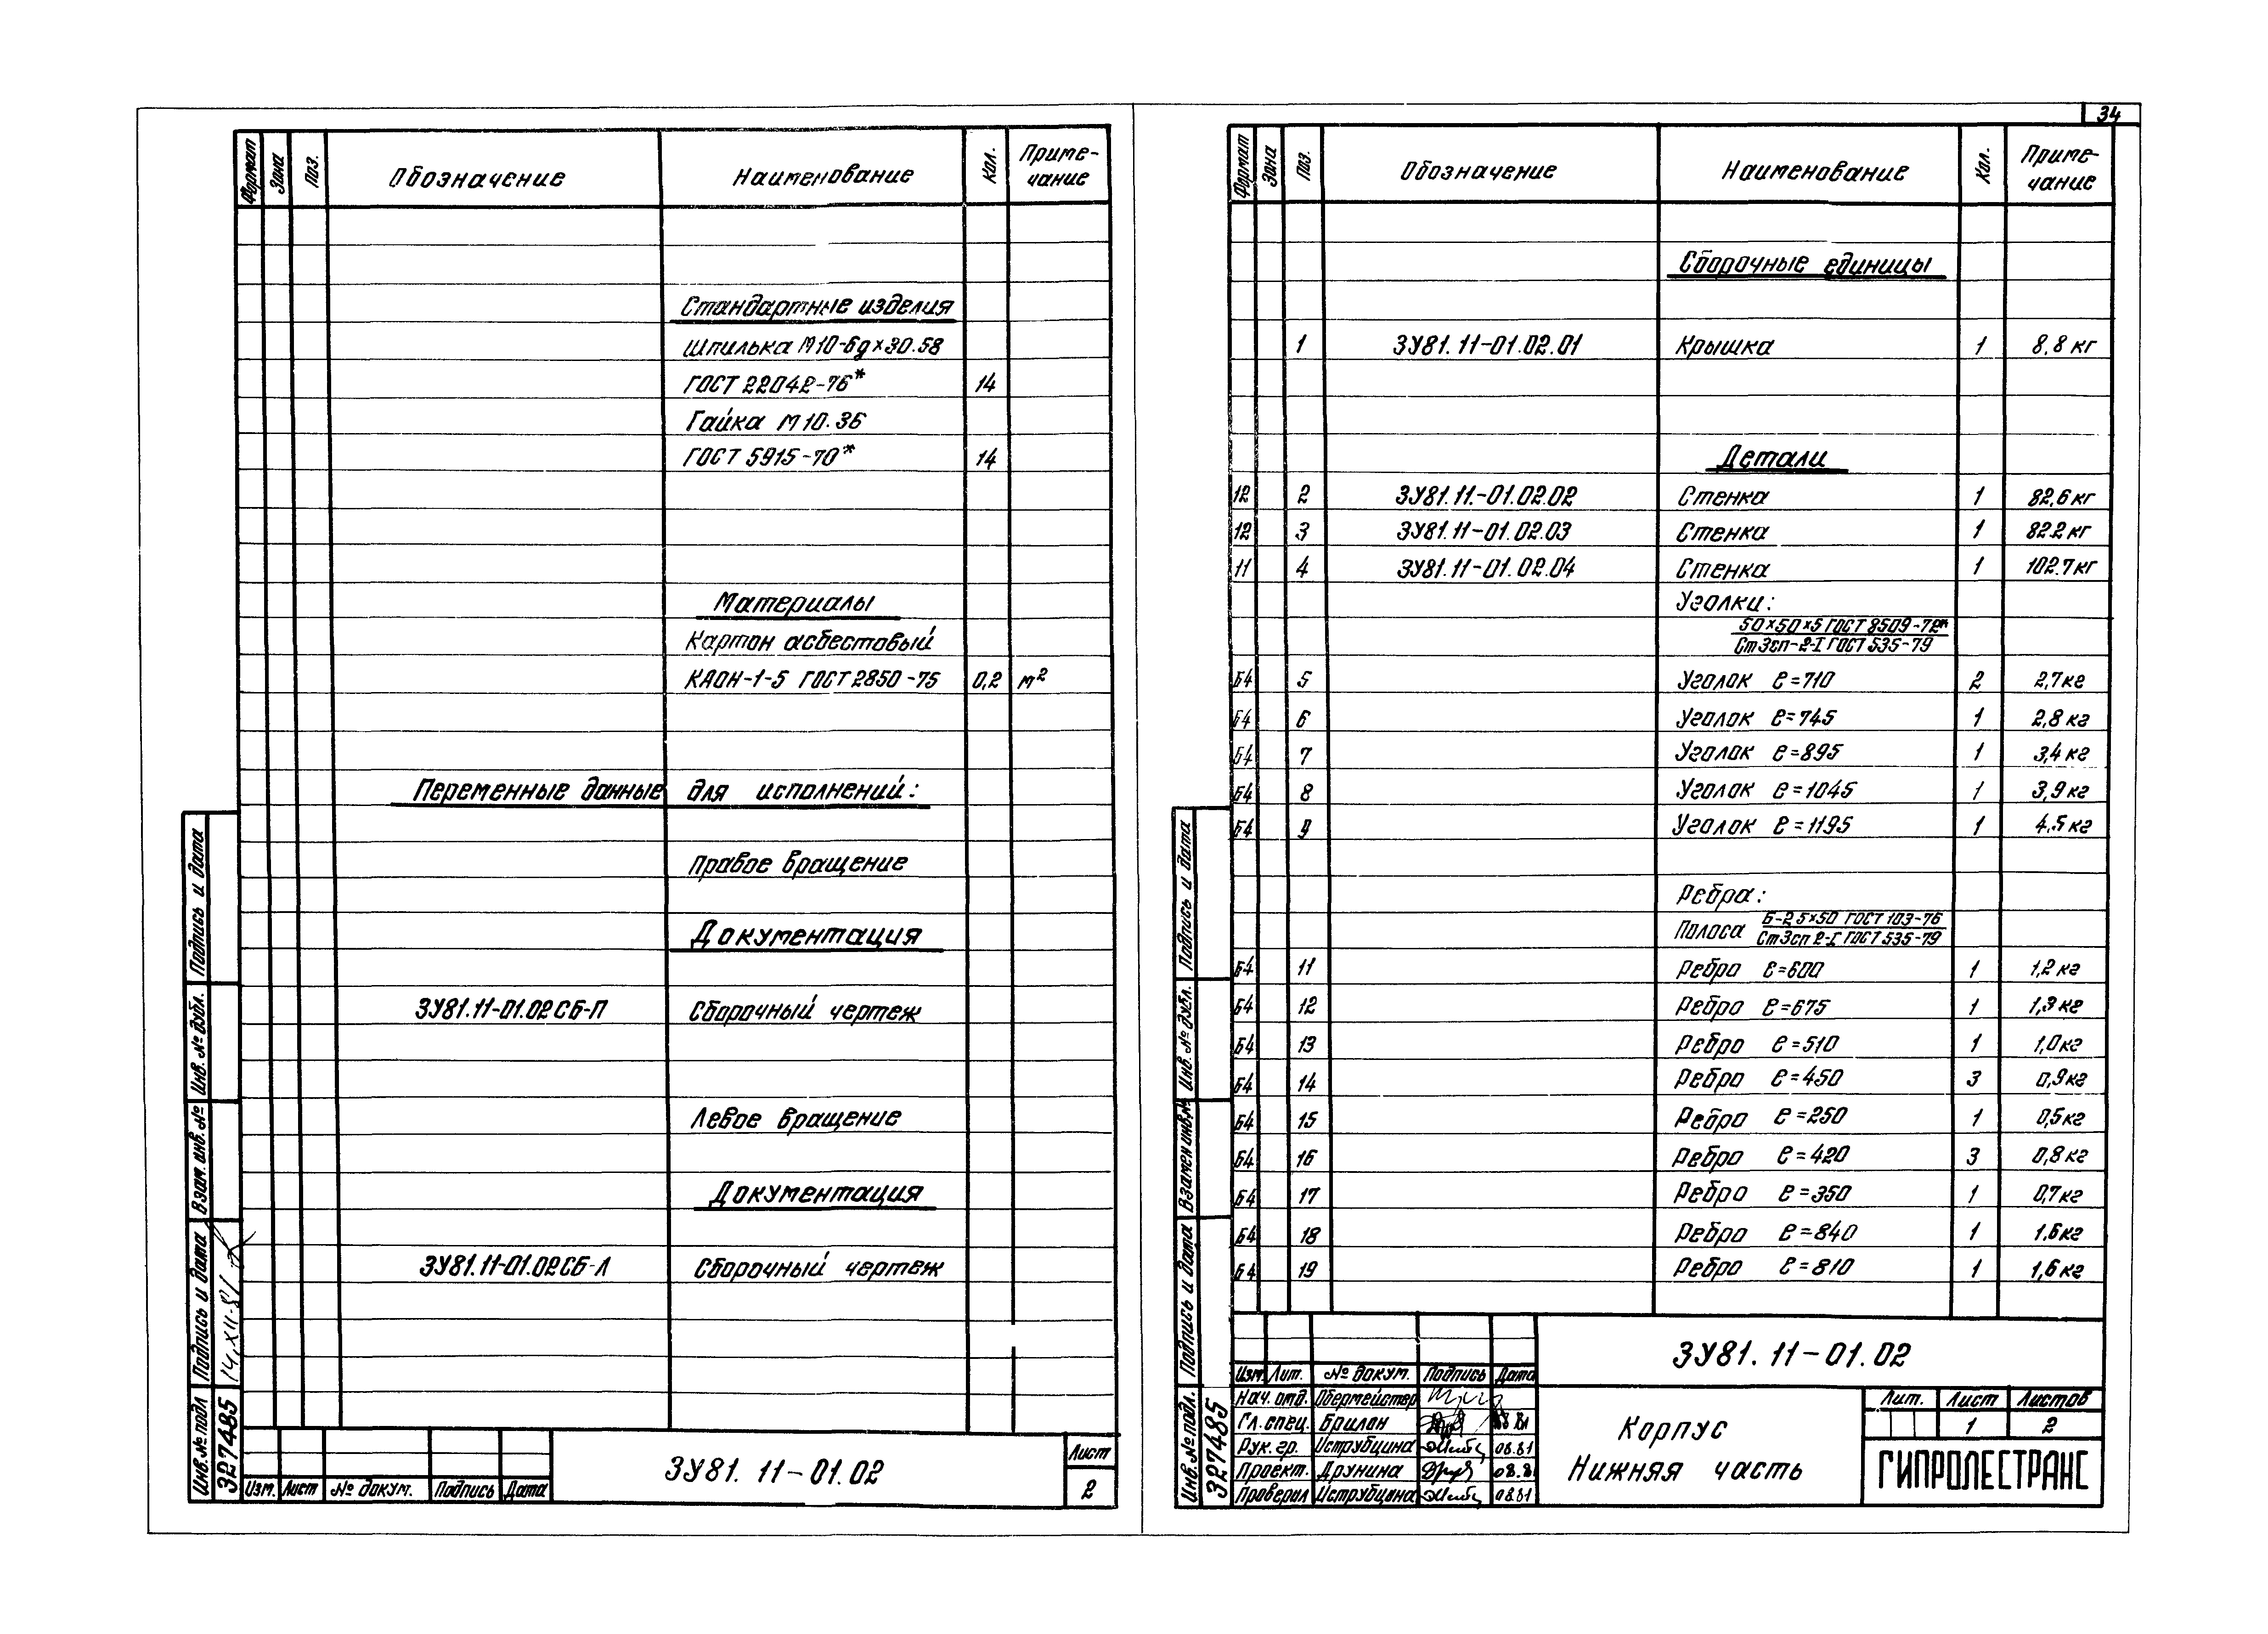 34
Формат Зона Поз. Обозначение Наименование Кол. Приме-
чание
Стандартные изделия
Шпилька М10-6gх30.58
ГОСТ 22042-76* 14
Гайка М10.36
ГОСТ 5915-70* 14
Материалы
Картон асбестовый
КАОН-1-5 ГОСТ 2850-75 0,2 м²
Переменные данные для исполнений:
Правое вращение
Документация
ЗУ81.11-01.02СБ-П Сборочный чертеж
Левое вращение
Документация
ЗУ81.11-01.02СБ-Л Сборочный чертеж
Подпись и дата
Инв. № дубл.
Взам. инв. №
Подпись и дата 14.XII-81
Инв. № подл 327485
Изм. Лист № докум. Подпись Дата
ЗУ81.11-01.02
Лист
2
Формат Зона Поз. Обозначение Наименование Кол. Приме-
чание
Сборочные единицы
1 ЗУ81.11-01.02.01 Крышка 1 8,8 кг
Детали
12 2 ЗУ81.11-01.02.02 Стенка 1 82,6 кг
12 3 ЗУ81.11-01.02.03 Стенка 1 82.2 кг
11 4 ЗУ81.11-01.02.04 Стенка 1 102.7 кг
Уголки:
50×50×5 ГОСТ 8509-72*
Ст3сп-2-I ГОСТ 535-79
Б4 5 Уголок ℓ=710 2 2,7 кг
Б4 6 Уголок ℓ=745 1 2,8 кг
Б4 7 Уголок ℓ=895 1 3,4 кг
Б4 8 Уголок ℓ=1045 1 3,9 кг
Б4 9 Уголок ℓ=1195 1 4.5 кг
Ребра:
Полоса Б-2 5×50 ГОСТ 103-76
Ст3сп 2-I ГОСТ 535-79
Б4 11 Ребро ℓ=600 1 1,2 кг
Б4 12 Ребро ℓ=675 1 1,3 кг
Б4 13 Ребро ℓ=510 1 1,0 кг
Б4 14 Ребро ℓ=450 3 0,9 кг
Б4 15 Ребро ℓ=250 1 0,5 кг
Б4 16 Ребро ℓ=420 3 0,8 кг
Б4 17 Ребро ℓ=350 1 0,7 кг
Б4 18 Ребро ℓ=840 1 1,6 кг
Б4 19 Ребро ℓ=810 1 1,6 кг
Подпись и дата
Инв. № дубл.
Взамен инв.№
Подпись и дата
Инв. № подл. 327485
ЗУ81.11-01.02
Изм. Лит. № докум. Подпись Дата
Нач. отд. Обермейстер
Гл. спец. Брилон
Рук. гр. Иструбцина 08.81
Проект. Дрынина 08.81
Проверил Иструбцина 08.81
Корпус
Нижняя часть
Лит. Лист Листов
1 2
ГИПРОЛЕСТРАНС